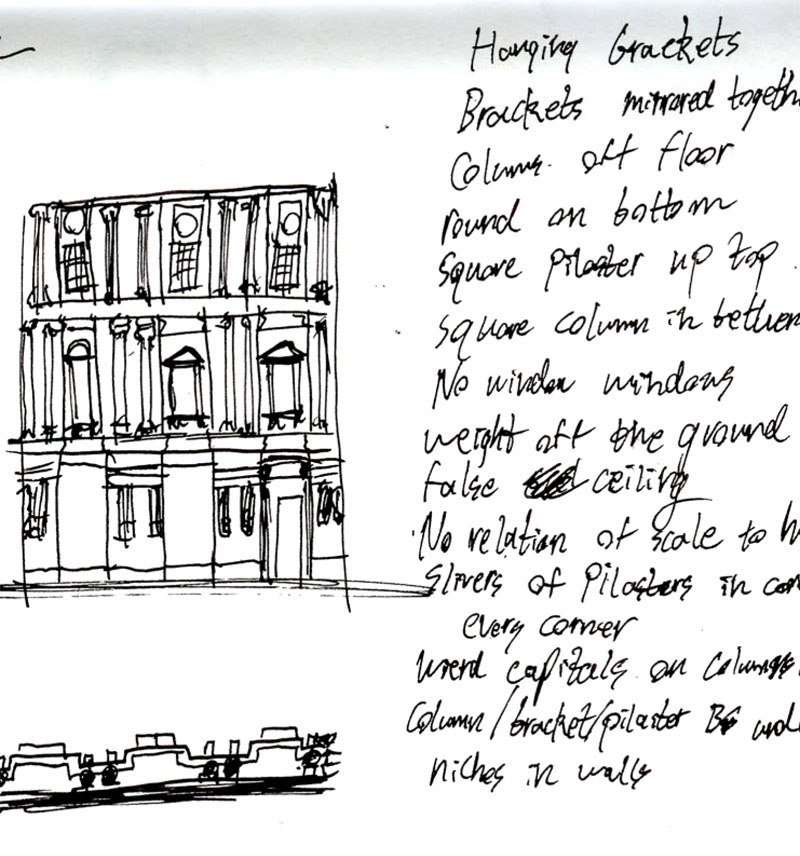 Hanging brackets
Brackets mirrored togeth
Column off floor
round on bottom
Square pilaster up top
square column in between
No windows
weight off the ground
false ceiling
No relation of scale to h
Slivers of Pilasters in cor
every corner
capitals on columns
Column/bracket/pilaster
niches in walls